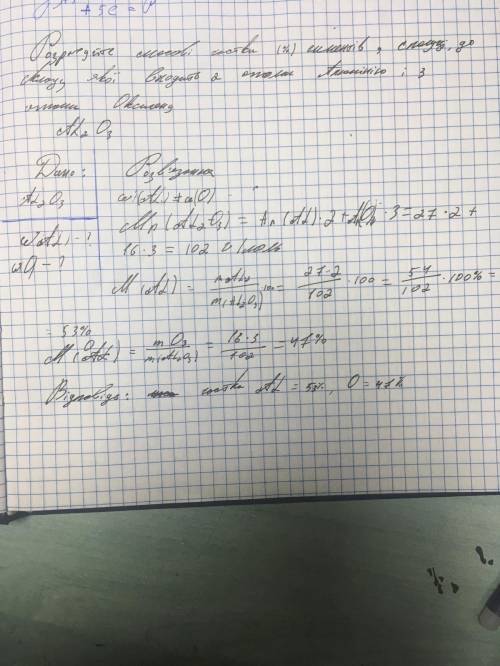 + 5C =
Розрахуйте масові частки (%) елементів, сполуці, до
складу якої входить 2 атоми Алюмінію і 3
атоми Оксигену
Al2O3
Дано: Розв'язання
Al2O3 ω(Al) + ω(O)
ω(Al) - ? Mr(Al2O3) = Ar(Al)·2 + Ar(O)·3 = 27·2 +
ω O - ? 16·3 = 102 г/моль
M(Al) = m Al2 / m(Al2O3) 100 = 27·2 / 102 · 100 = 54 / 102 · 100% =
= 53%
M(O) = m O3 / m(Al2O3) = 16·3 / 102 = 47%
Відповідь: частка Al = 53%, O = 47%